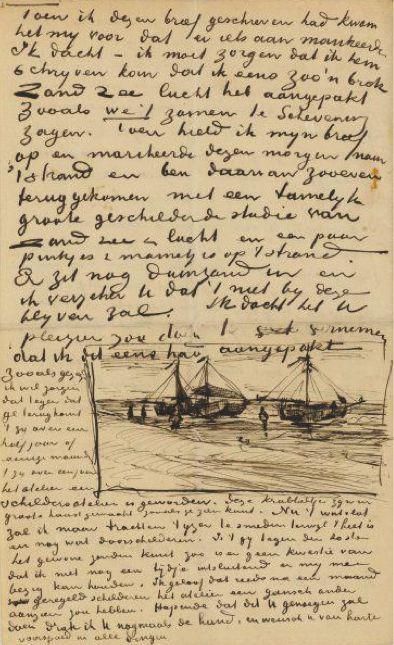 Toen ik dezen brief geschreven had kwam
het my voor dat er iets aan mankeerde.
Ik dacht – ik moet zorgen dat ik hem
schryven kan dat ik eens zoo'n brok
zand zee lucht heb aangepakt
zooals we't zamen te Schevening
zagen. Toen hield ik myn brief
op en marcheerde dezen morgen naar
't strand en ben daarvan zooeven
teruggekomen met een tamelyk
groote geschilderde studie van
zand zee & lucht en een paar
pinkjes & mannetjes op 't strand.
Er zit nog duinzand in en
ik verzeker U dat 't niet by deze
blyven zal. Ik dacht het U
pleizier zou doen
dat ik dit eens had aangepakt
Zooals gezegd
ik wil zorgen
dat tegen dat
ge terugkomt
't zy over een
half jaar of
maand
't zy over een jaar
het atelier een
schildersatelier is geworden. Deze krabbeltjes zyn in
groote haast gemaakt zooals je zien kunt. Nu 't wat vlot
zal ik maar trachten 't yzer te smeden terwyl 't heet is
en nog wat doorschilderen. Is't gy tegen den 10den
het gewone zenden kunt zoo is er geen kwestie van
dat ik niet nog een tydje uitsluitend er my mee
bezig kan houden. Ik geloof dat reeds na een maand
geregeld schilderen het atelier een gansch ander
aanzien zou hebben. Hopende dat dit U genoegen zal
doen druk ik U nogmaals de hand, en wensch U van harte
voorspoed in alle dingen